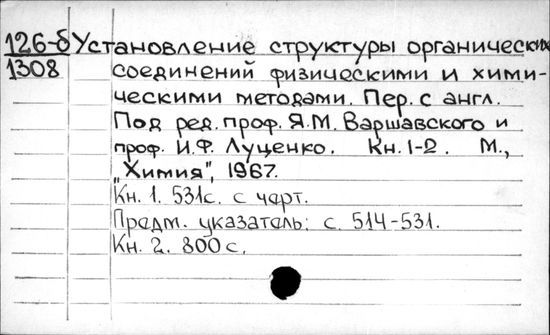 126-б Установление структуры органических
1308 соединений физическими и хими-
ческими методами. Пер. с англ.
Под ред. проф. Я.М. Варшавского и
проф. И.Ф. Луценко. Кн. 1-2. М.,
„Химия", 1967.
Кн. 1. 531с. с черт.
Предм. указатель: с. 514-531.
Кн. 2. 800 с.